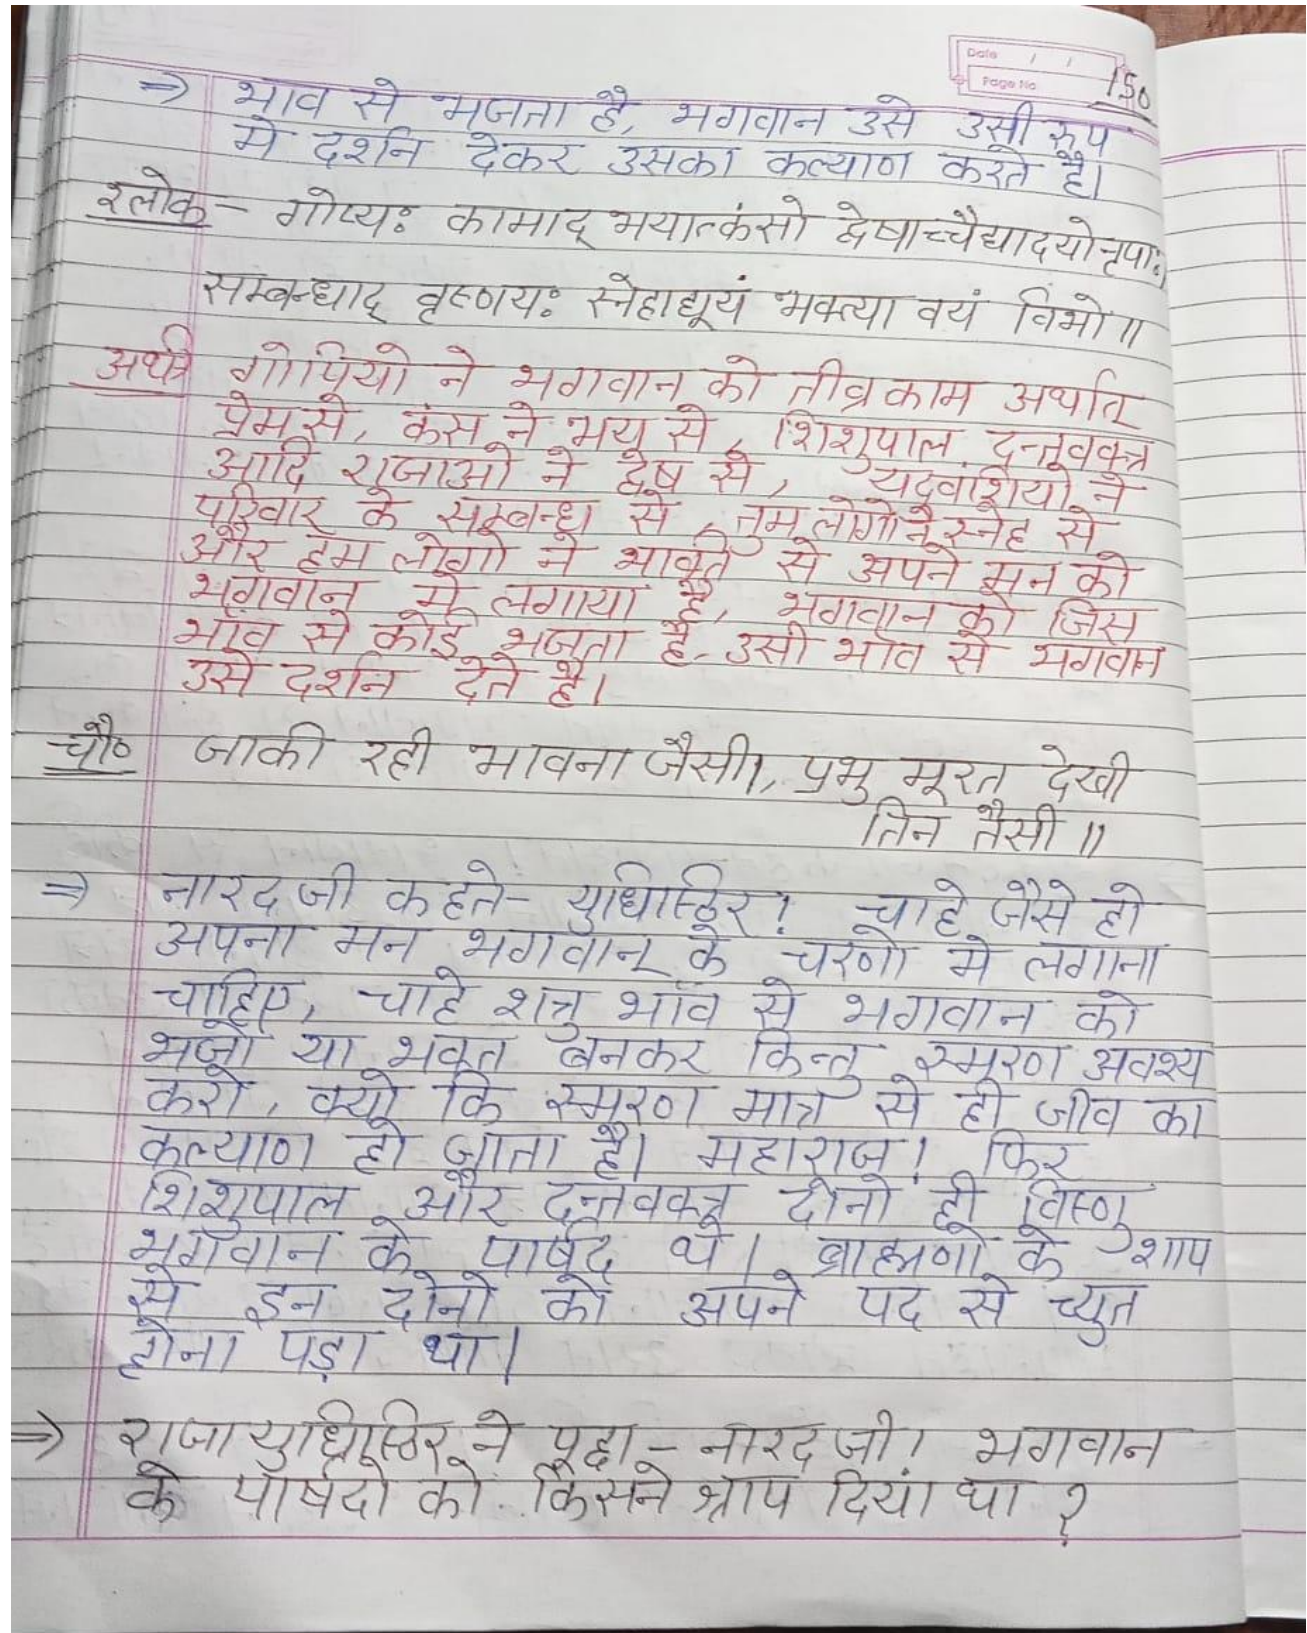 Date / /
Page No 150
⇒ भाव से भजता है, भगवान उसे उसी रूप
मे दर्शन देकर उसका कल्याण करते है।
श्लोक - गोप्यः कामाद् भयात्कंसो द्वेषाच्चैद्यादयो नृपाः,
सम्बन्धाद् वृष्णयः स्नेहाद्यूयं भक्त्या वयं विभो॥
अर्थ गोपियो ने भगवान को तीव्र काम अर्थात्
प्रेम से, कंस ने भय से, शिशुपाल दन्तवक्त्र
आदि राजाओ ने द्वेष से, यदुवंशियो ने
परिवार के सम्बन्ध से, तुम लोगो ने स्नेह से
और हम लोगो ने भक्ति से अपने मन को
भगवान मे लगाया है, भगवान को जिस
भॉव से कोई भजता है, उसी भॉव से भगवान
उसे दर्शन देते है।
चौ० जाकी रही भावना जैसी।, प्रभु मूरत देखी
तिन तैसी॥
⇒ नारद जी कहते - युधिष्ठिर! चाहे जैसे हो
अपना मन भगवान् के चरणो मे लगाना
चाहिए, चाहे शत्रु भॉव से भगवान को
भजो या भक्त बनकर किन्तु स्मरण अवश्य
करो, क्यो कि स्मरण मात्र से ही जीव का
कल्याण हो जाता है। महाराज! फिर
शिशुपाल और दन्तवक्त्र दोनो ही विष्णु
भगवान के पार्षद थे। ब्राह्मणो के शाप
से इन दोनो को अपने पद से च्युत
होना पड़ा था।
⇒ राजा युधिष्ठिर ने पूछा - नारद जी। भगवान
के पार्षदो को किसने श्राप दिया था ?